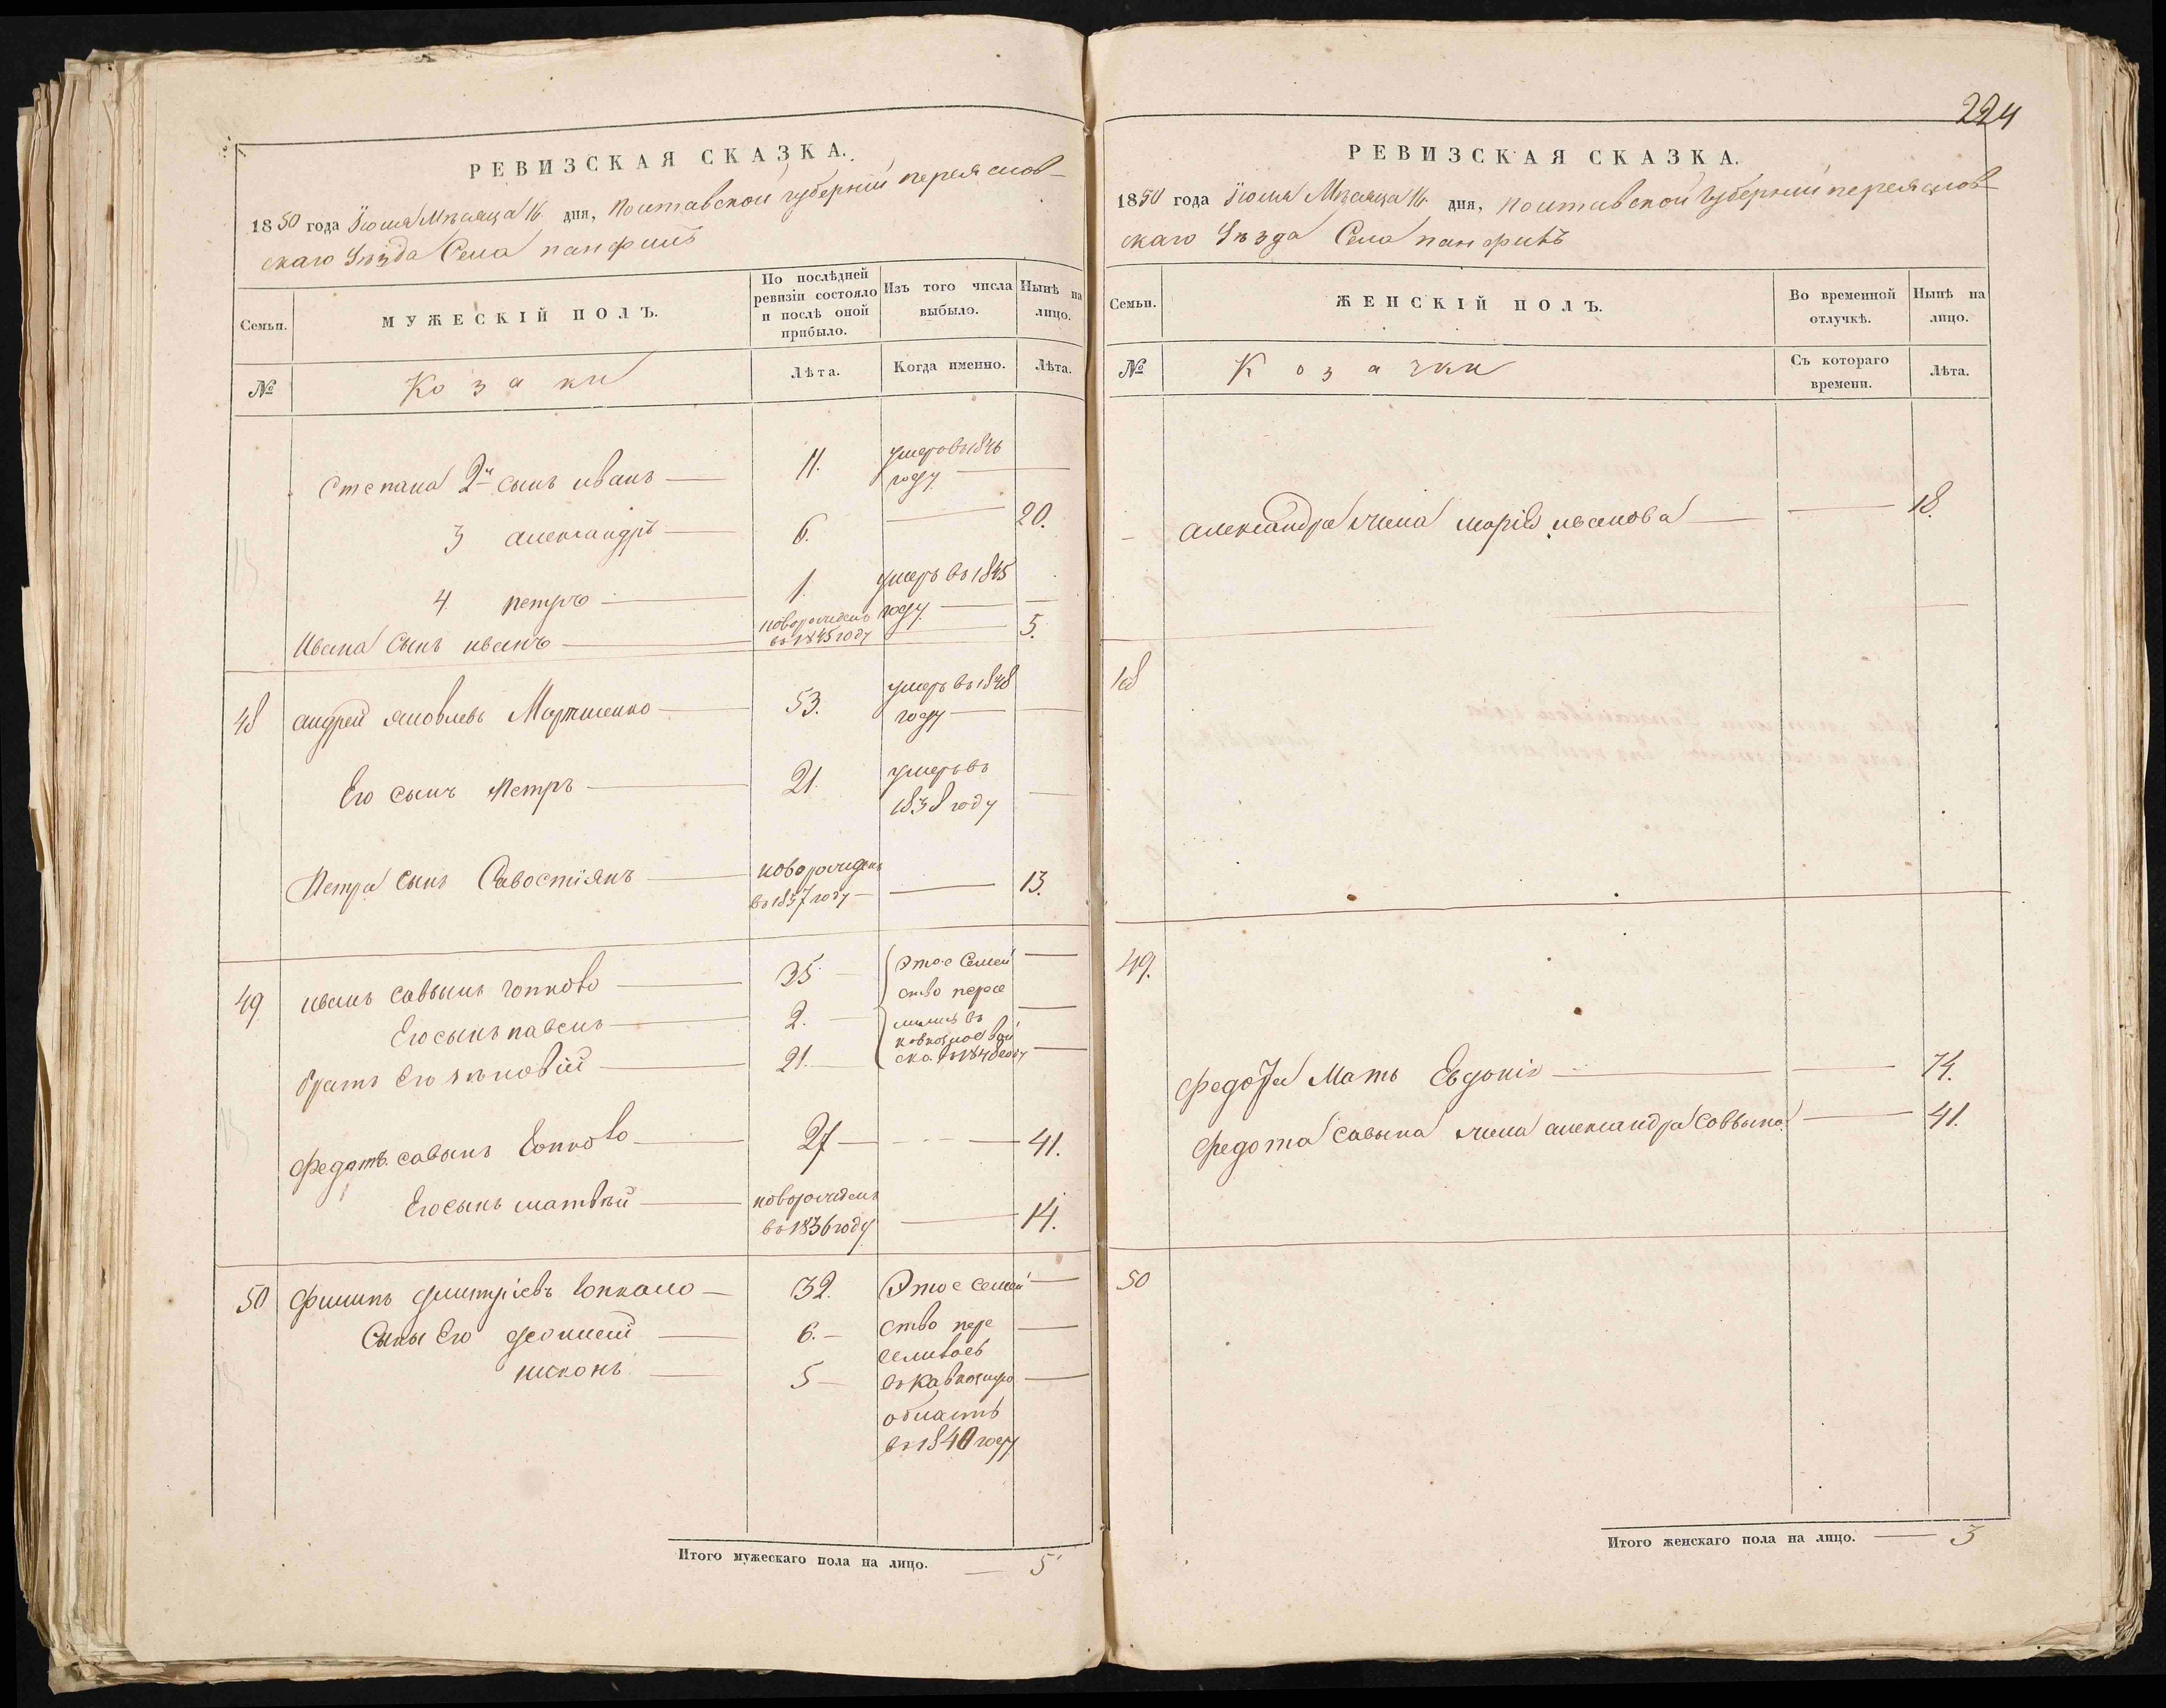 224
РЕВИЗСКАЯ СКАЗКА.
1850 года Июня Мѣсяца 16 дня, Полтавской губерніи переяслов-
скаго Уѣзда Села панфилъ
Семьи.
МУЖЕСКІЙ ПОЛЪ.
По послѣдней ревизіи состояло и послѣ оной прибыло.
Изъ того числа выбыло.
Нынѣ на лицо.
№
Козаки
Лѣта.
Когда именно.
Лѣта.
Степана 2й сынъ иванъ 11. умеръ въ 184
году
3 александръ 6. 20.
4. петръ 1. умеръ въ 1845
году
Ивана сынъ иванъ новорожденъ
въ 1845 году 5.
48 андрей яковлевъ Мартиненко 53. умеръ въ 1848
году
Его сынъ Петръ 21. умеръ въ
1838 году
Петра сынъ Савостіянъ новорожденъ
въ 1837 году 13.
49 иванъ савынъ 35 Этое Семей
ство пересе
Его сынъ павелъ 2.
въ
братъ Его 21.
Федотъ савынъ 27 41.
Его сынъ матвѣй новорожденъ
въ 1836 году 14.
50 Филипъ дмитріевъ 32. Этое семей
ство пере
Сыны Его 6.
селилось
никонъ 5
область
въ 1840 году
Итого мужескаго пола на лицо. 5
РЕВИЗСКАЯ СКАЗКА.
1850 года Июня Мѣсяца 16 дня, Полтавской Губерніи переяслов-
скаго Уѣзда Села панфилъ
Семьи.
ЖЕНСКІЙ ПОЛЪ.
Во временной отлучкѣ.
Нынѣ на лицо.
№
Козачки
Съ котораго времени.
Лѣта.
александра жена марія иванова 18.
48
49.
Федота Мать Евдокія 74.
Федота савына жена александра 41.
50
Итого женскаго пола на лицо. 3